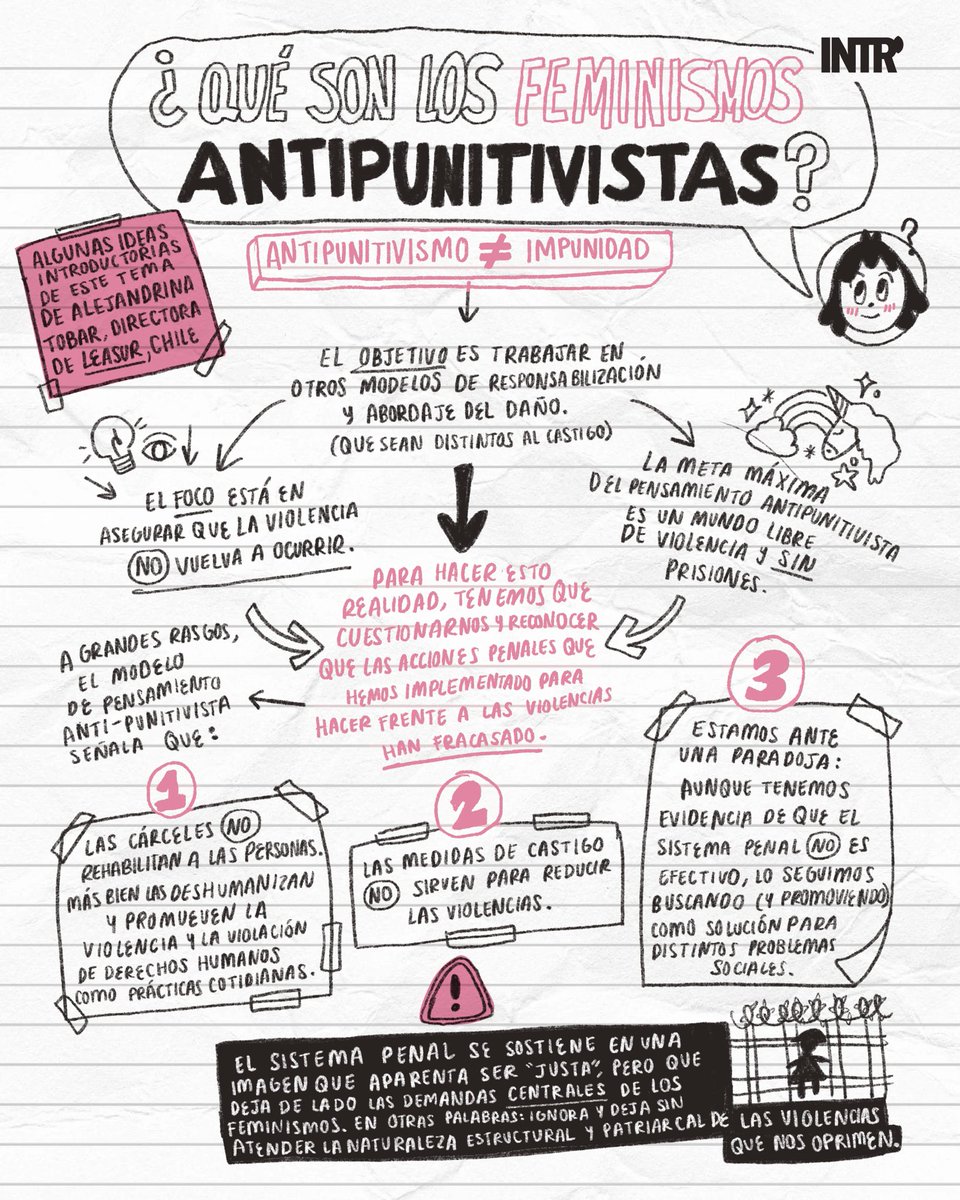 INTR'
¿QUÉ SON LOS FEMINISMOS
ANTIPUNITIVISTAS?
ANTIPUNITIVISMO ≠ IMPUNIDAD
ALGUNAS IDEAS
INTRODUCTORIAS
DE ESTE TEMA
DE ALEJANDRINA
TOBAR, DIRECTORA
DE LEASUR, CHILE
?
EL OBJETIVO ES TRABAJAR EN
OTROS MODELOS DE RESPONSABILIZACIÓN
Y ABORDAJE DEL DAÑO.
(QUE SEAN DISTINTOS AL CASTIGO)
EL FOCO ESTÁ EN
ASEGURAR QUE LA VIOLENCIA
NO VUELVA A OCURRIR.
LA META MÁXIMA
DEL PENSAMIENTO ANTIPUNITIVISTA
ES UN MUNDO LIBRE
DE VIOLENCIA Y SIN
PRISIONES.
PARA HACER ESTO
REALIDAD, TENEMOS QUE
CUESTIONARNOS Y RECONOCER
QUE LAS ACCIONES PENALES QUE
HEMOS IMPLEMENTADO PARA
HACER FRENTE A LAS VIOLENCIAS
HAN FRACASADO.
A GRANDES RASGOS,
EL MODELO
DE PENSAMIENTO
ANTI-PUNITIVISTA
SEÑALA QUE:
1
LAS CÁRCELES NO
REHABILITAN A LAS PERSONAS.
MÁS BIEN LAS DESHUMANIZAN
Y PROMUEVEN LA
VIOLENCIA Y LA VIOLACIÓN
DE DERECHOS HUMANOS
COMO PRÁCTICAS COTIDIANAS.
2
LAS MEDIDAS DE CASTIGO
NO SIRVEN PARA REDUCIR
LAS VIOLENCIAS.
3
ESTAMOS ANTE
UNA PARADOJA:
AUNQUE TENEMOS
EVIDENCIA DE QUE EL
SISTEMA PENAL NO ES
EFECTIVO, LO SEGUIMOS
BUSCANDO (Y PROMOVIENDO)
COMO SOLUCIÓN PARA
DISTINTOS PROBLEMAS
SOCIALES.
!
EL SISTEMA PENAL SE SOSTIENE EN UNA
IMAGEN QUE APARENTA SER "JUSTA", PERO QUE
DEJA DE LADO LAS DEMANDAS CENTRALES DE LOS
FEMINISMOS. EN OTRAS PALABRAS: IGNORA Y DEJA SIN
ATENDER LA NATURALEZA ESTRUCTURAL Y PATRIARCAL DE LAS VIOLENCIAS
QUE NOS OPRIMEN.